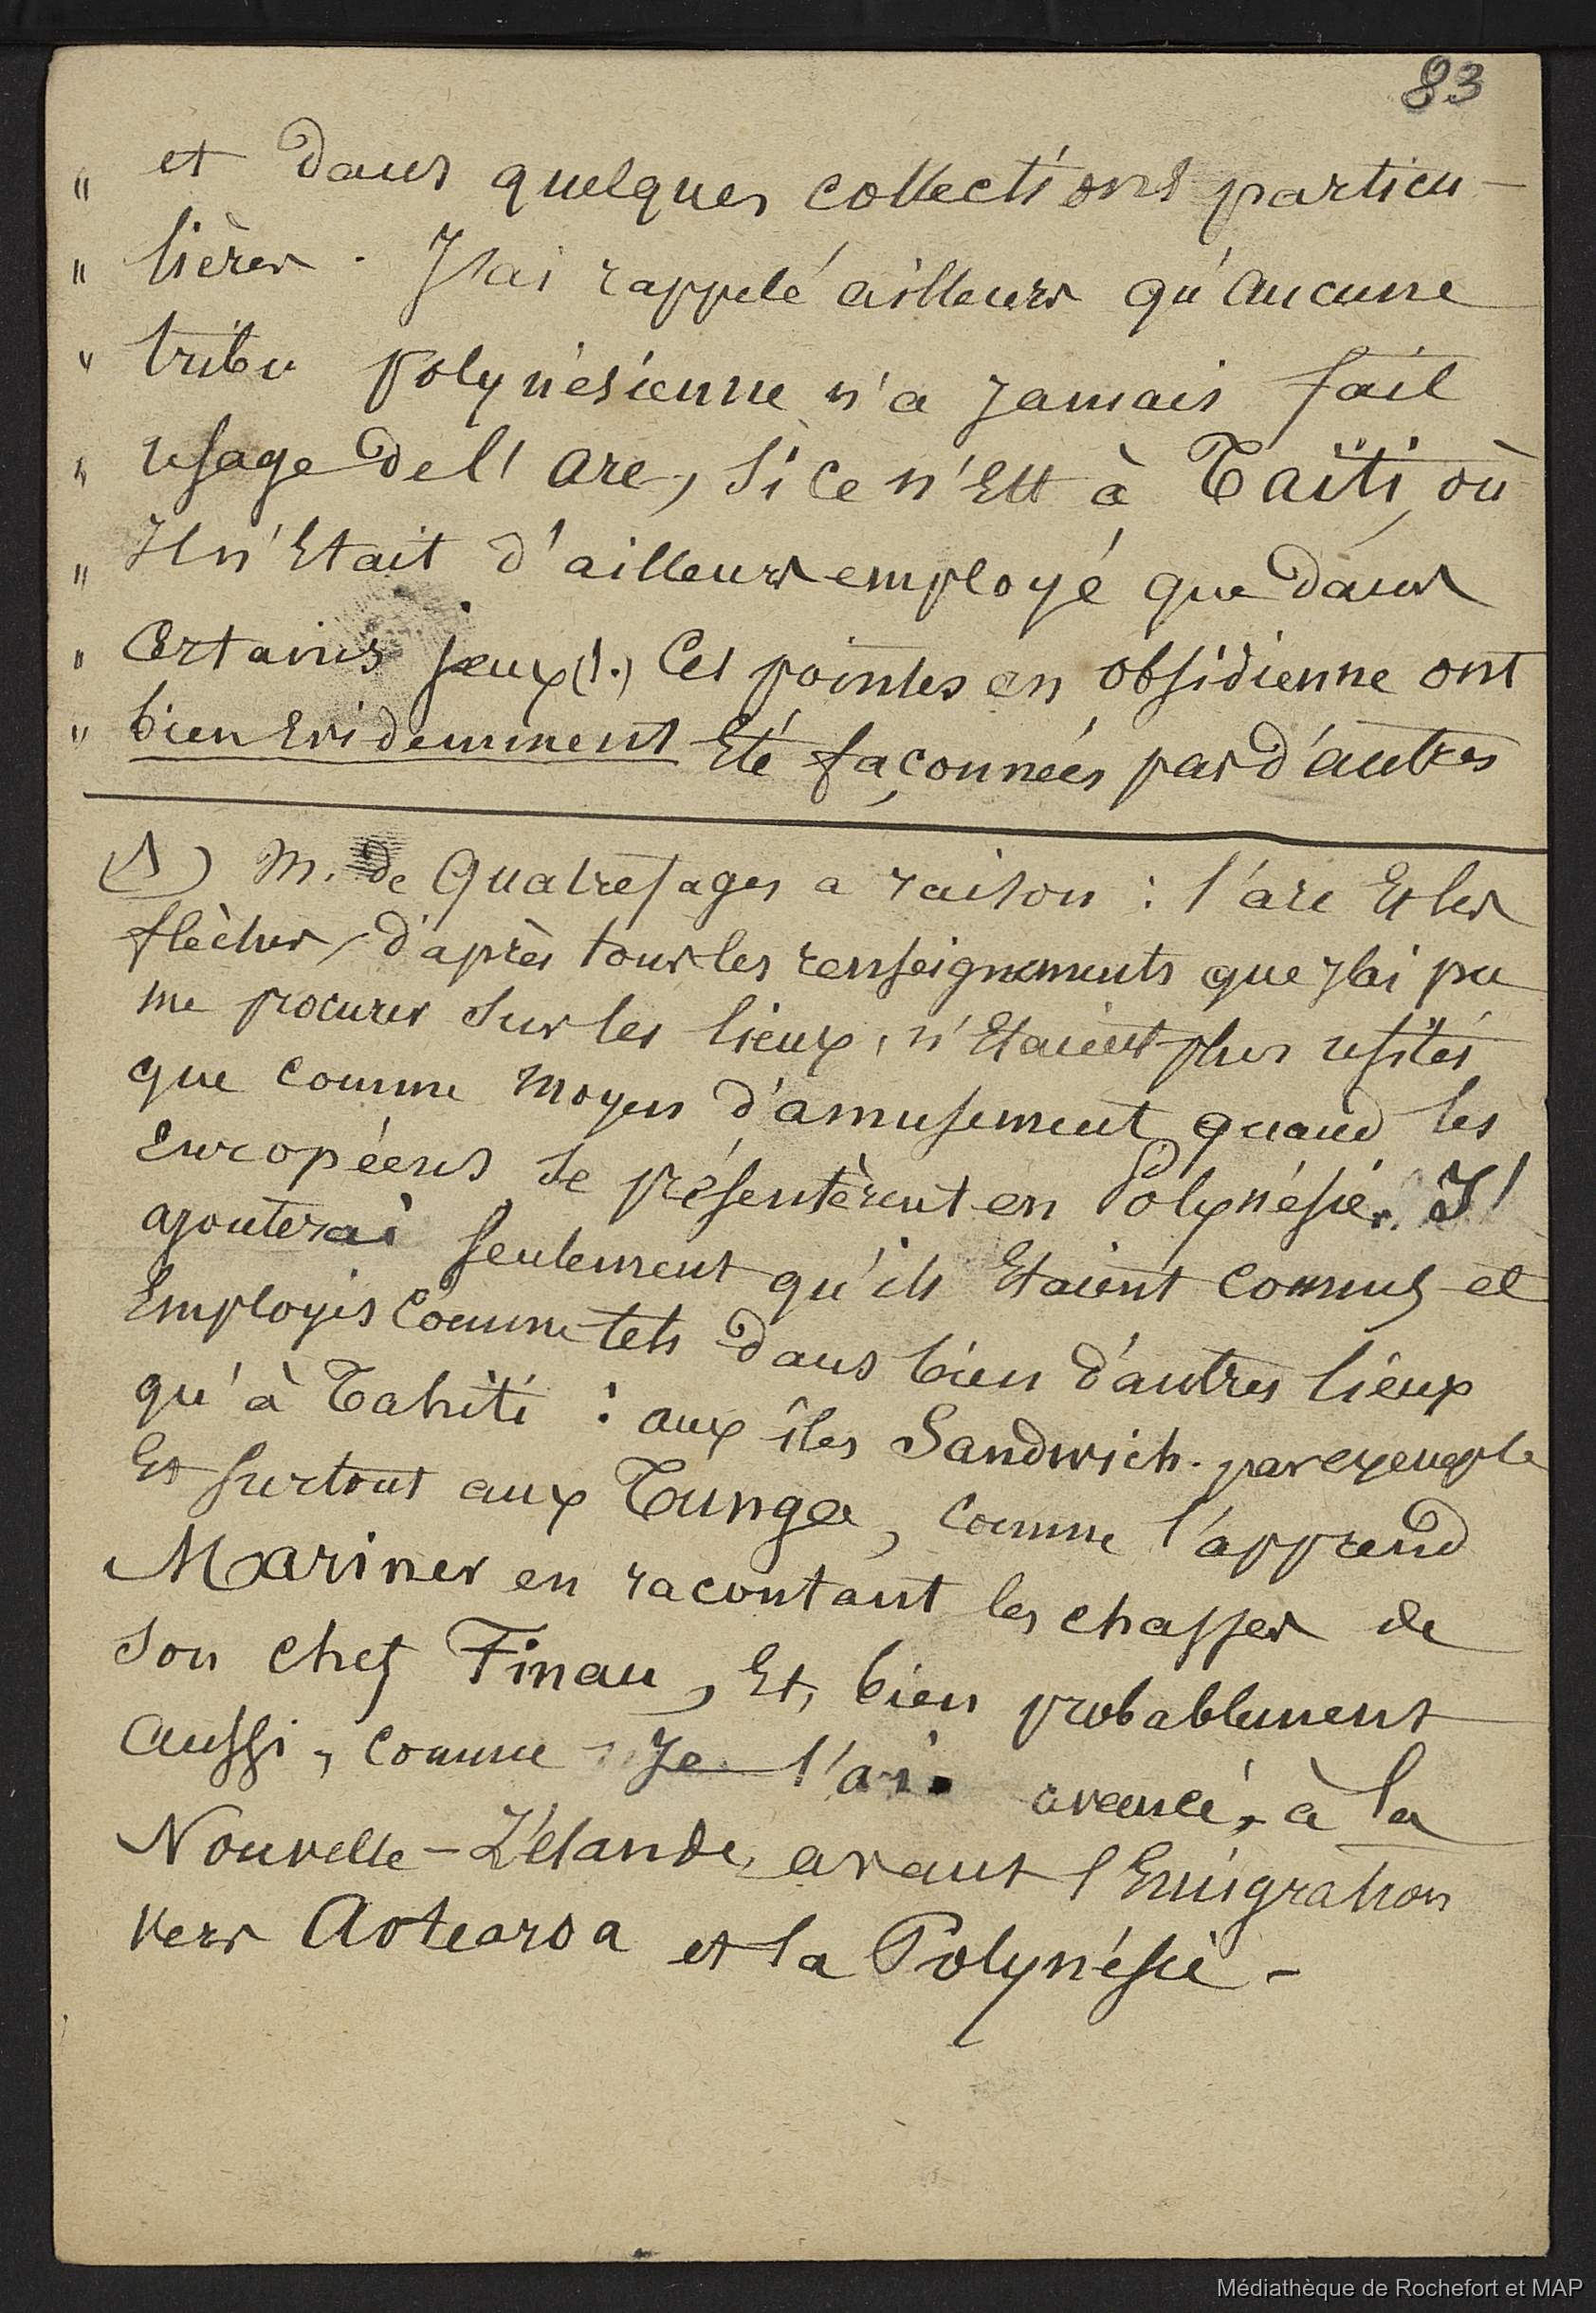 83
" et dans quelques collections particu-
" lières. J'ai rappelé ailleurs qu'aucune
" tribu polynésienne n'a jamais fait
" usage de l'arc, si ce n'est à Taïti, où
" Il n'était d'ailleurs employé que dans
" certains jeux (1.) Ces pointes en obsidienne ont
" bien evidemment été façonnées par d'autres
(1) M. de Quatrefages a raison : l'arc et les
flèches, d'après tous les renseignements que j'ai pu
me procurer sur les lieux, n'étaient plus usités
que comme moyen d'amusement quand les
européens se présentèrent en Polynésie. J'
ajouterai seulement qu'ils étaient connus et
employés comme tels dans bien d'autres lieux
qu'à Tahiti : aux îles Sandwich. par exemple
et surtout aux Tunga, comme l'apprend
Mariner en racontant les chasses de
son chef Finau, et, bien probablement
aussi, comme je l'ai avancé, à la
Nouvelle-Zélande, avant l'émigration
vers Aotearoa et la Polynésie -
Médiathèque de Rochefort et MAP